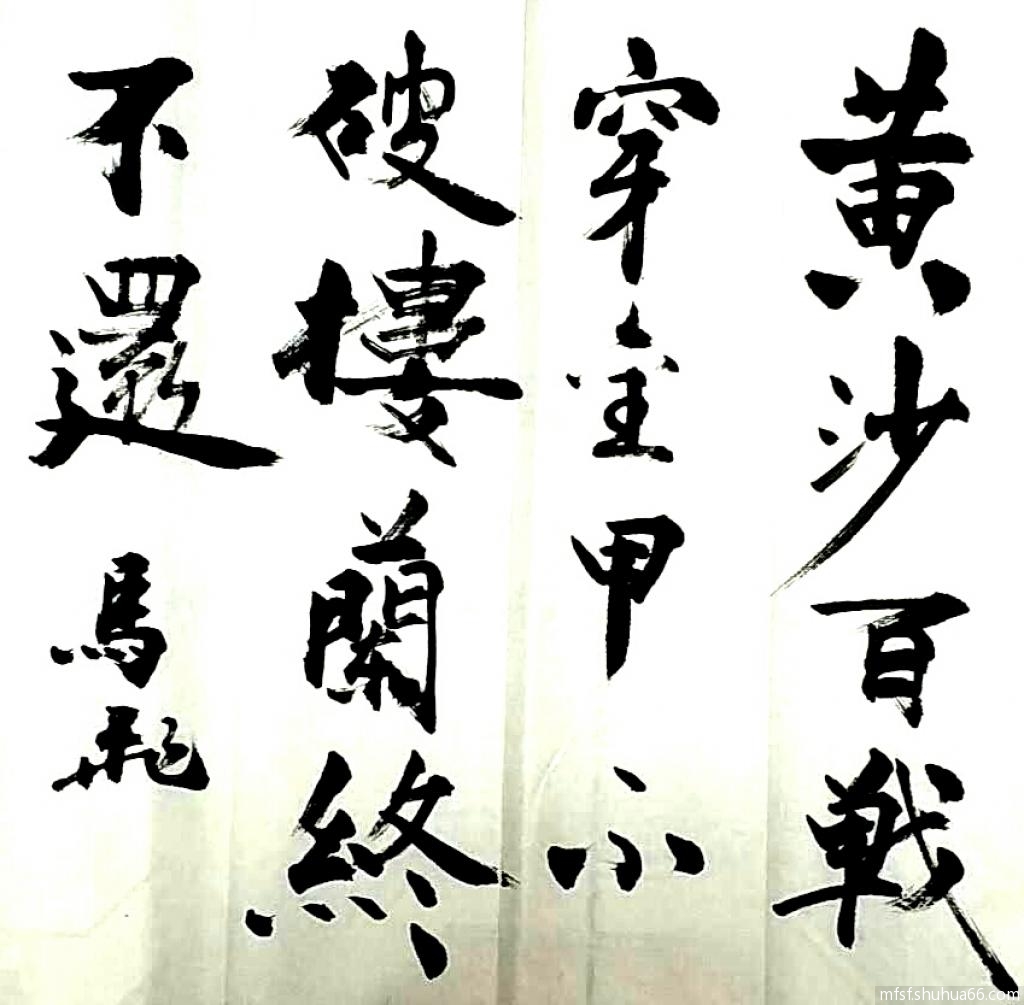 黄沙百戦
穿金甲不
破樓蘭終
不還 馬飛
mfsfshuhua66.com